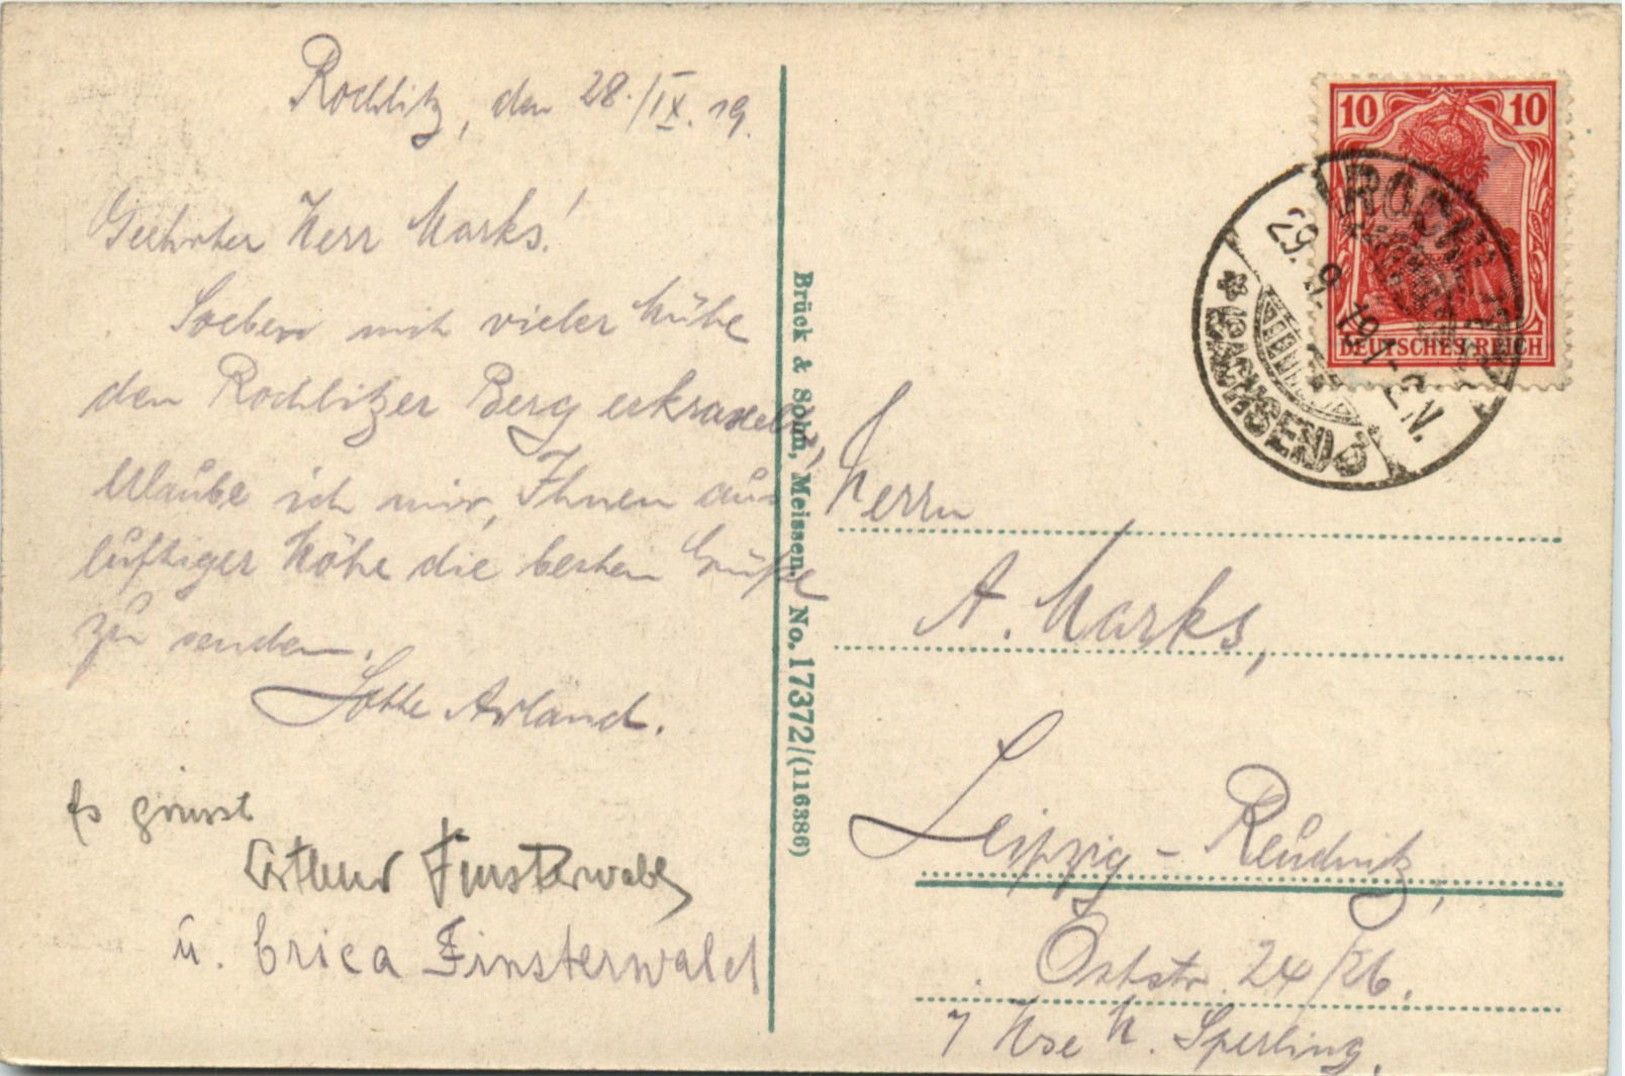 Rochlitz, den 28./IX. 19.
Geehrter Herr Marks!
Soeben mit vieler Mühe
den Rochlitzer Berg erkraxelt,
erlaube ich mir, Ihnen aus
luftiger Höhe die besten Grüße
zu senden.
Lotte Arland.
Es grüsst
Arthur Finsterwald
u. Erica Finsterwald
Brück & Sohn, Meissen. No. 17372/(116386)
10 10
DEUTSCHES REICH
ROCHLITZ
29. 9. 19. 
* (SACHSEN)
Herrn
A. Marks,
Leipzig - Reudnitz,
Oststr. 24/26.
H. Sperling.